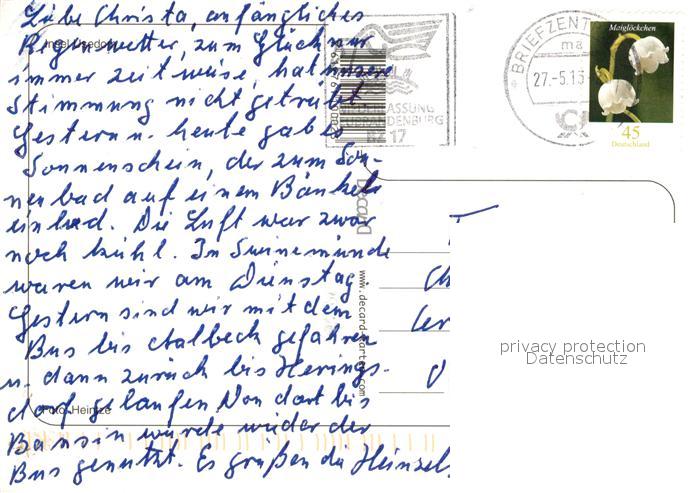 Liebe Christa, anfängliches
Regenwetter, zum Glück nur
immer zeitweise, hat unsere
Stimmung nicht getrübt.
Gestern u. heute gab es
Sonnenschein, der zum Son-
nenbad auf einem Bänkele
einlud. Die Luft war zwar
noch kühl. In Swinemünde
waren wir am Dienstag,
Gestern sind wir mit dem
Bus bis Ahlbeck gefahren
u. dann zurück bis Herings-
dorf gelaufen. Von dort bis
Bansin wurde wieder der
Bus genutzt. Es grüßen die Heinzel
Insel Usedom
Foto: Heintze
Decard
www.decard-karten.com
NIEDERLASSUNG
NEUBRANDENBURG
BZ 17
BRIEFZENT
ma
27.-5.13
Maiglöckchen
45
Deutschland
privacy protection
Datenschutz